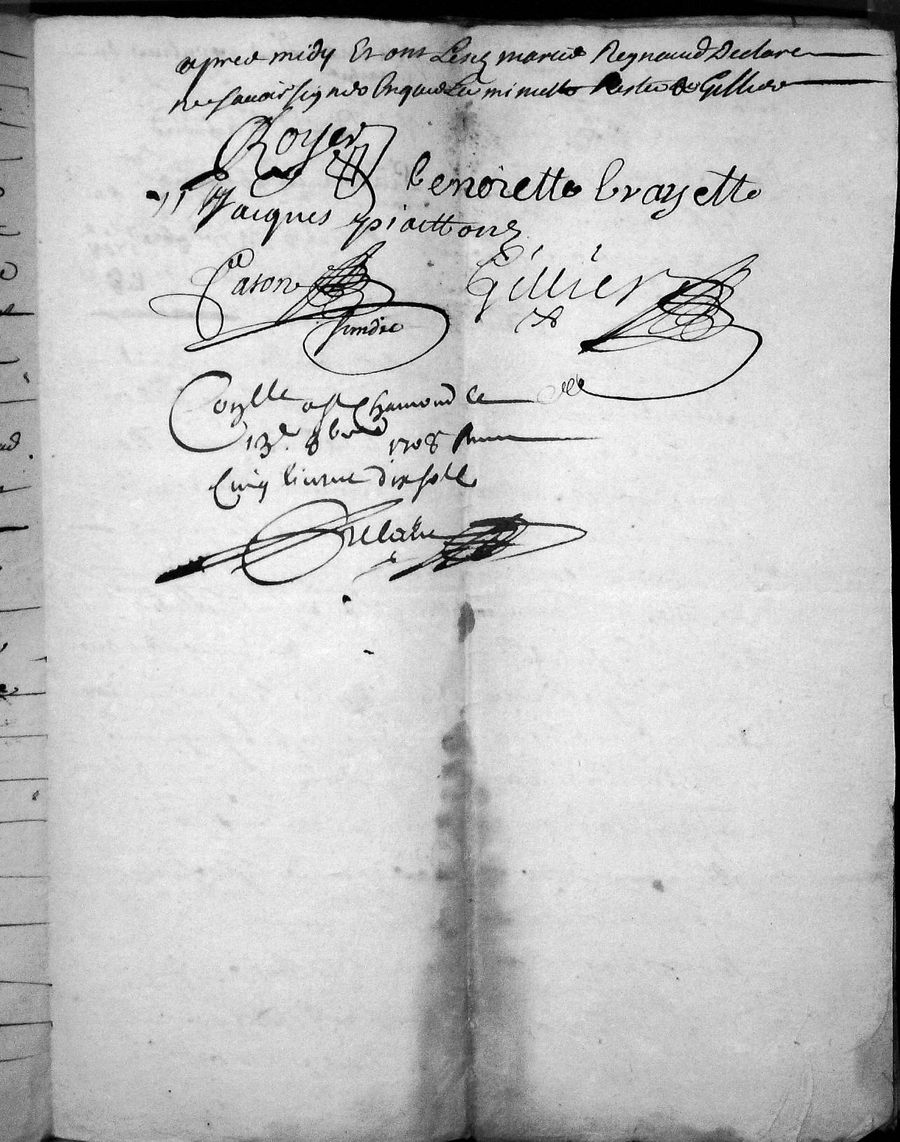 apres midy Et ont Lesd mariés Reynaud Declaré
ne sçavoir signer Enquis La minutte Restée Gillier
Royer
benoiette brayette
Jacques piattons
Paron
Gillier
sindic
Conlle a st Chamond le
13e 8bre 1708 Reçeu
Cinq livres dix sols